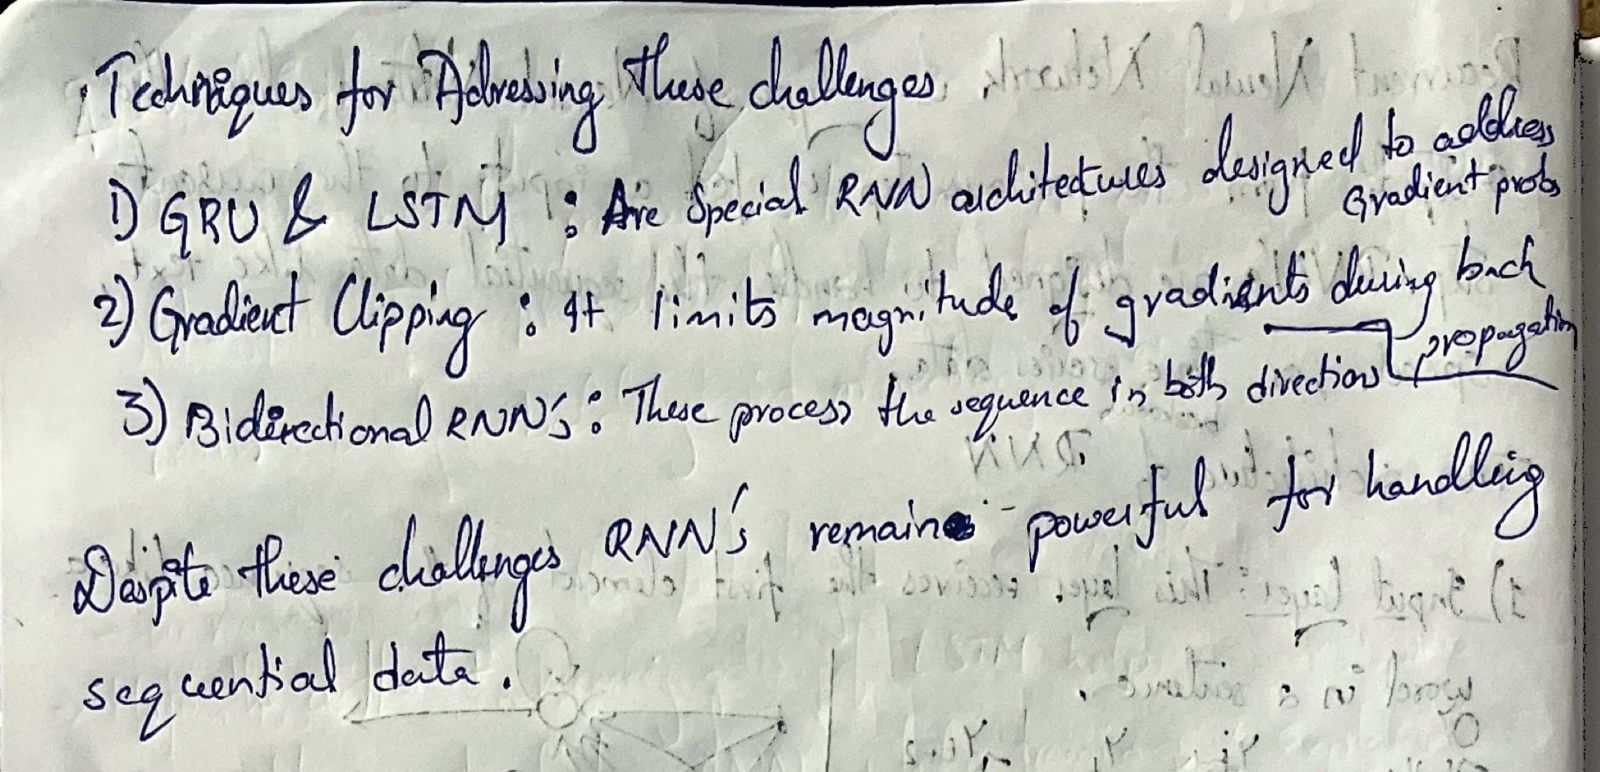 Techniques for Adressing these challenges
1) GRU & LSTM : Are Special RNN architectures designed to address
Gradient probs
2) Gradient Clipping : It limits magnitude of gradients during back
propagation
3) Bidirectional RNN's : These process the sequence in both directions
Despite these challenges RNN's remains powerful for handling
sequential data.